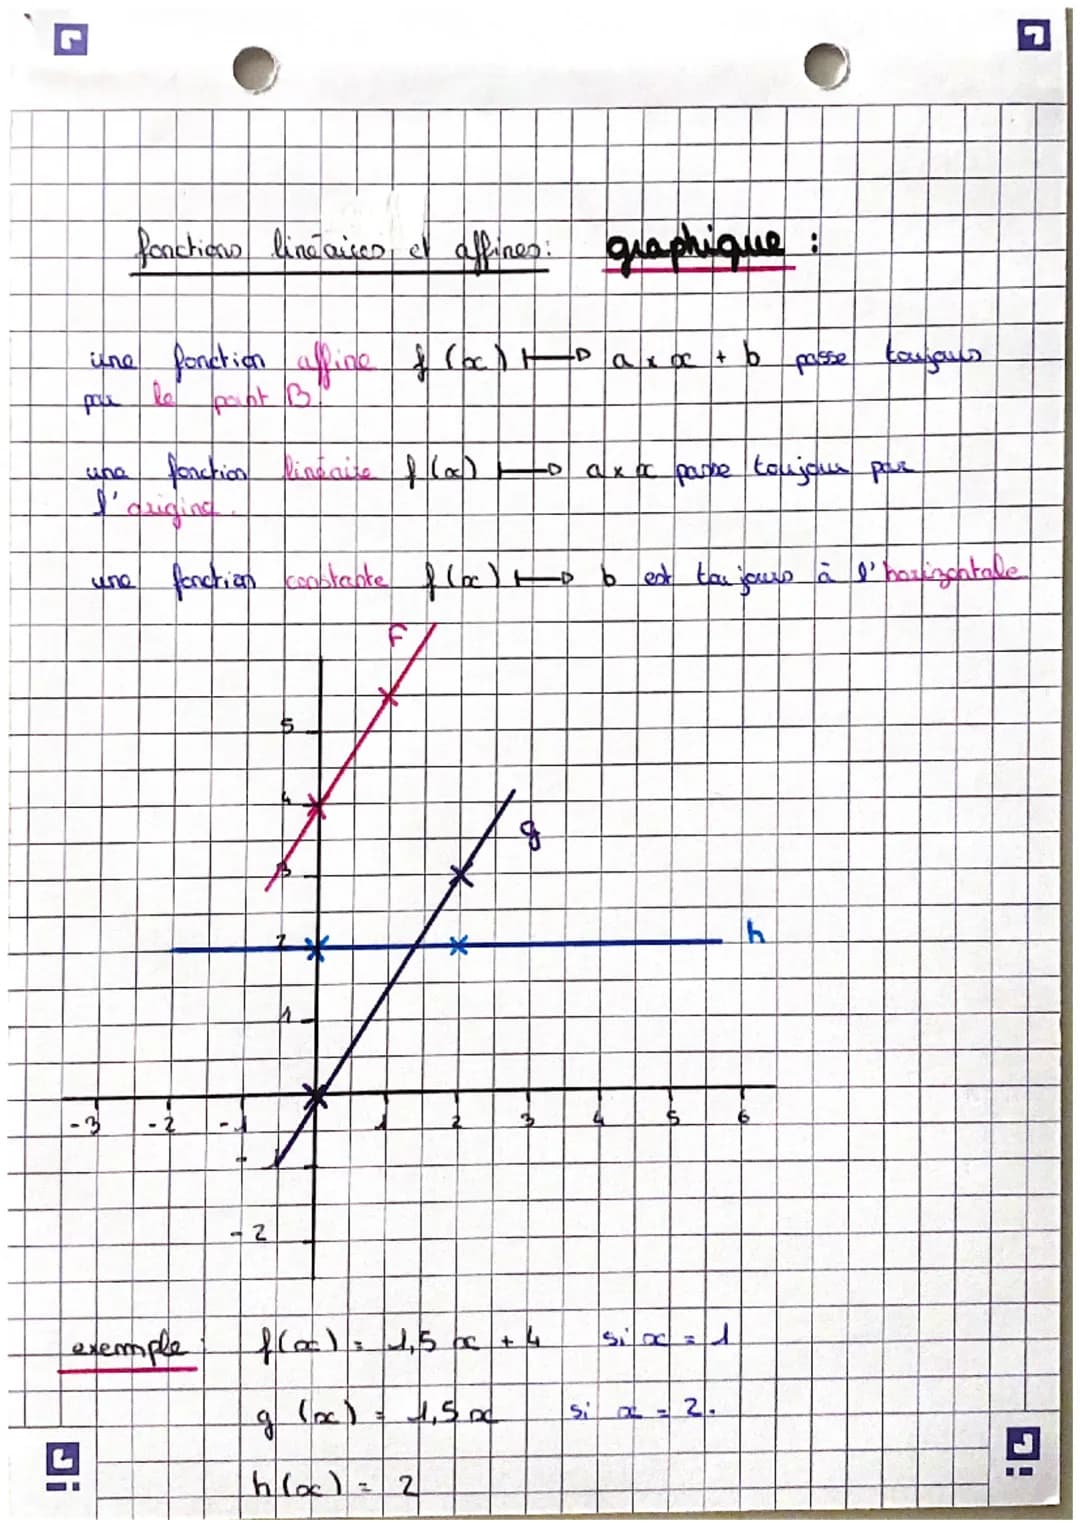 fonctions linéaires et affines: graphique :
une fonction affine f (x) ↦ a x x + b passe toujours
par le point B.
une fonction linéaire f(x) ↦ a x x passe toujours par
l'origine.
une fonction constante f(x) ↦ b est toujours à l'horizontale
F
5
4
g
3
2
h
1
-3 -2 -1 1 2 3 4 5 6
-
-2
exemple : f(x) = 1,5 x + 4 si x = 1
g (x) = 1,5x si x = 2.
h(x) = 2